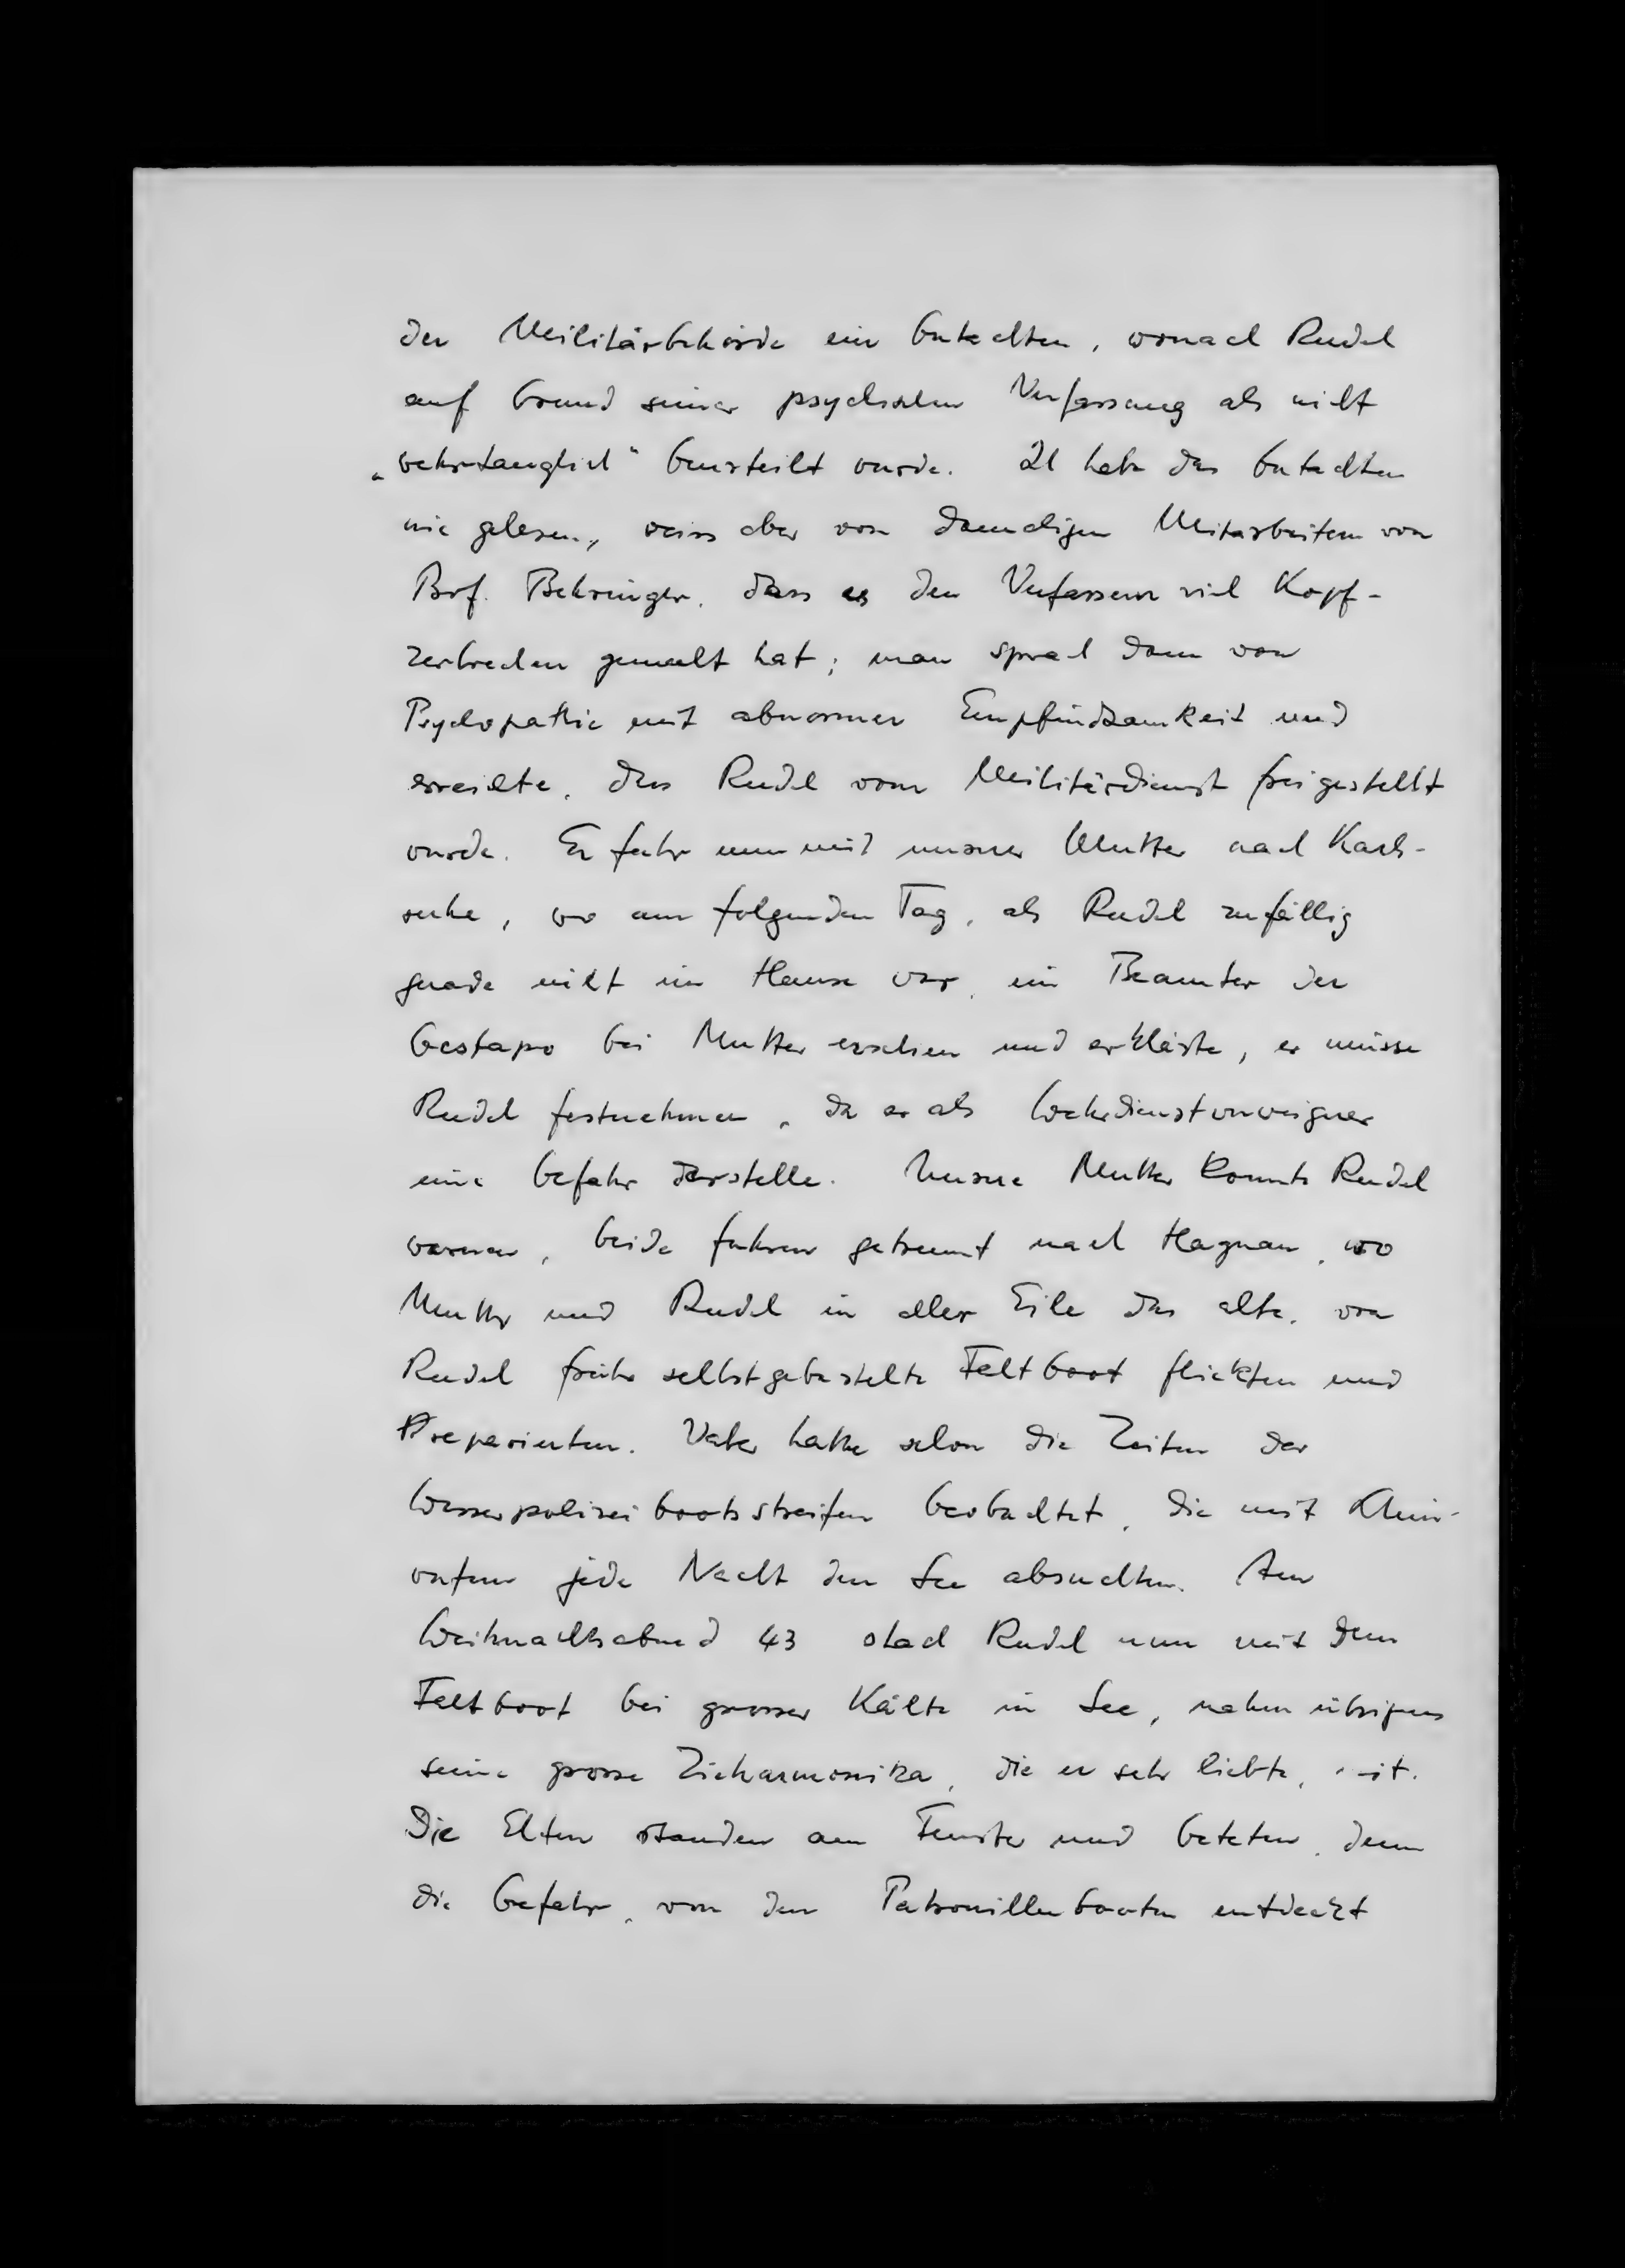 der Militärbehörde ein Gutachten, wonach Rudel
auf Grund seiner psychischen Verfassung als nicht
„wehrtauglich" beurteilt wurde. Ich habe das Gutachten
nie gelesen, weiss aber von damaligen Mitarbeitern von
Prof. Behringer, dass es den Verfassern viel Kopf-
zerbrechen gemacht hat; man sprach dann von
Psychopathie mit abnormer Empfindsamkeit und
erreichte, dass Rudel vom Militärdienst freigestellt
wurde. Er fuhr nun mit unserer Mutter nach Karls-
ruhe, wo am folgenden Tag, als Rudel zufällig
gerade nicht im Hause war, ein Beamter der
Gestapo bei Mutter erschien und erklärte, er müsse
Rudel festnehmen, da er als Wehrdienstverweigerer
eine Gefahr darstelle. Unsere Mutter konnte Rudel
warnen, beide fuhren getrennt nach Hagnau, wo
Mutter und Rudel in aller Eile das alte, von
Rudel früher selbstgebastelte Faltboot flickten und
reparierten. Vater hatte schon die Zeiten der
Wasserpolizeibootsstreifen beobachtet, die mit Schein-
werfern jede Nacht den See absuchten. Am
Weihnachtsabend 43 stach Rudel nun mit dem
Faltboot bei grosser Kälte in See, nahm übrigens
seine grosse Zieharmonika, die er sehr liebte, mit.
Die Eltern standen am Fenster und beteten, denn
die Gefahr, von den Patrouillenbooten entdeckt